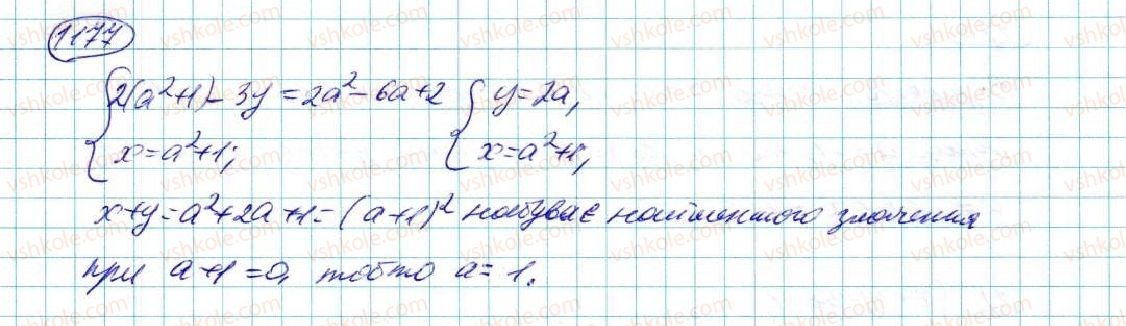 1177
{ 2(a²+1) - 3y = 2a² - 6a + 2 { y = 2a,
x = a²+1; x = a²+1;
x+y = a²+2a+1 = (a+1)² набуває найменшого значення
при a+1 = 0, тобто a = 1.